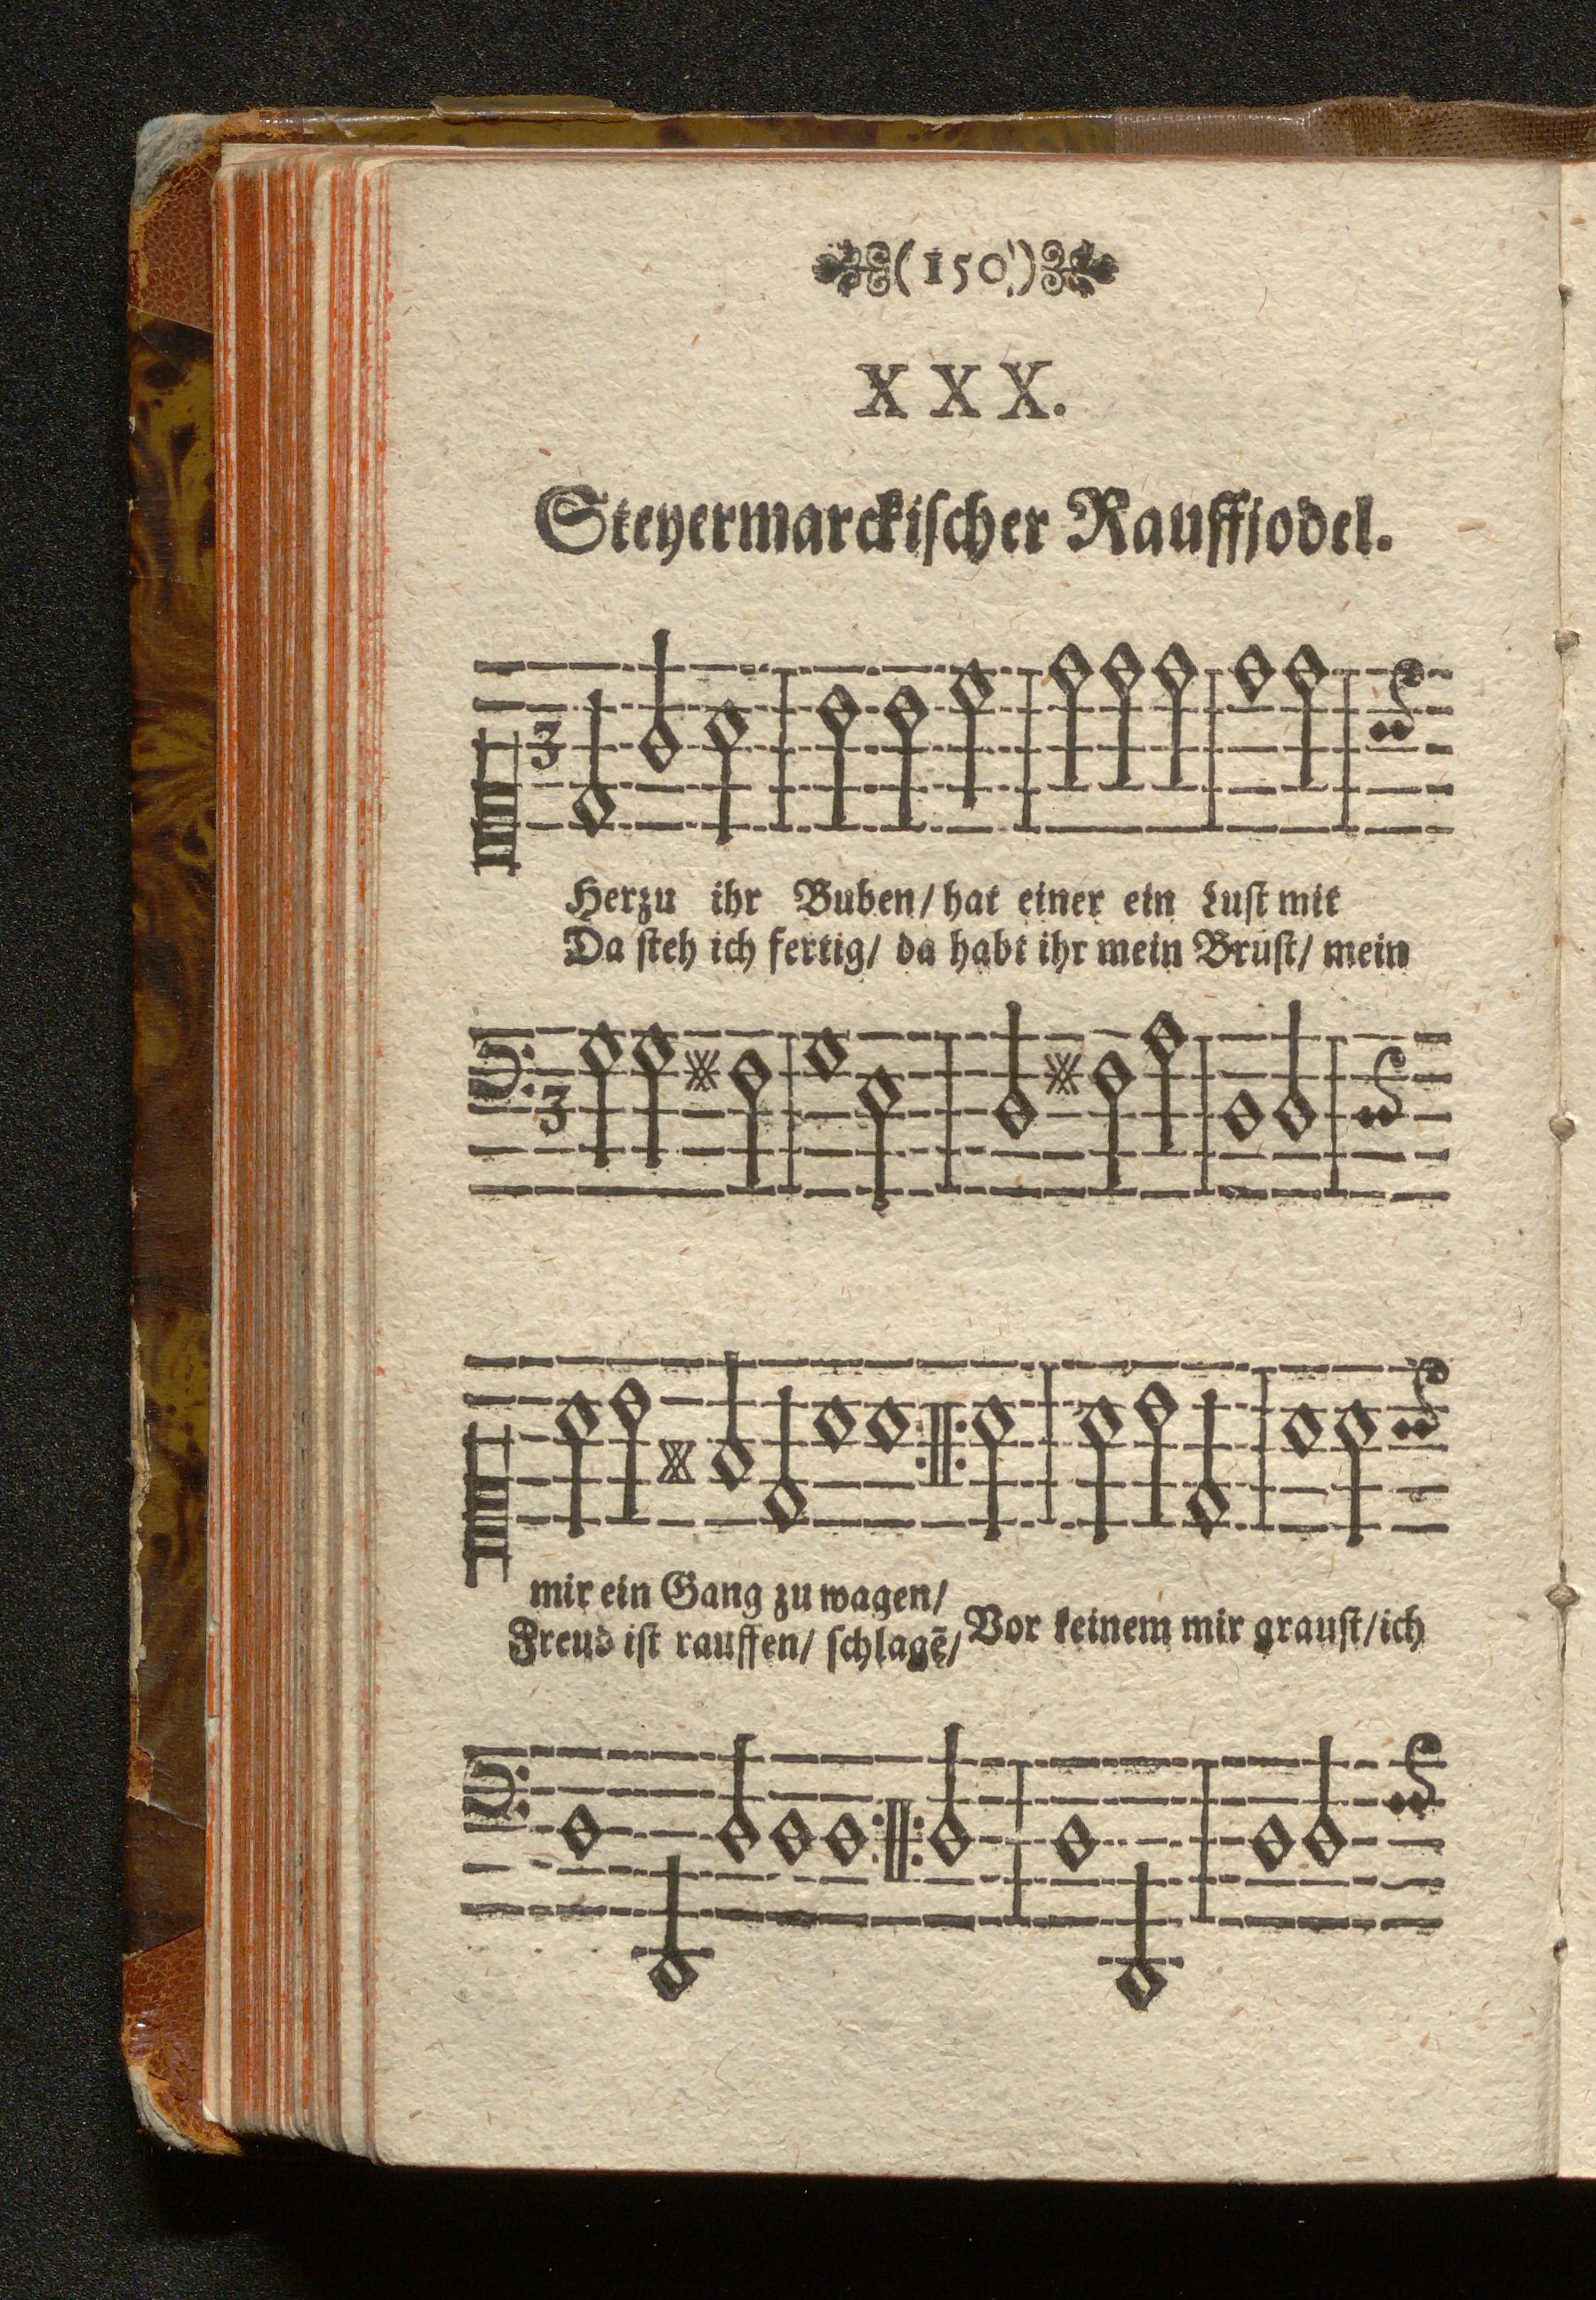 (150)
XXX.
Steyermarckischer Rauffjodel.
3
Herzu ihr Buben/ hat einer ein Lust mit
Da steh ich fertig/ da habt ihr mein Brust/ mein
3
mir ein Gang zu wagen/
Freud ist rauffen/ schlagẽ/
Vor keinem mir graust/ ich